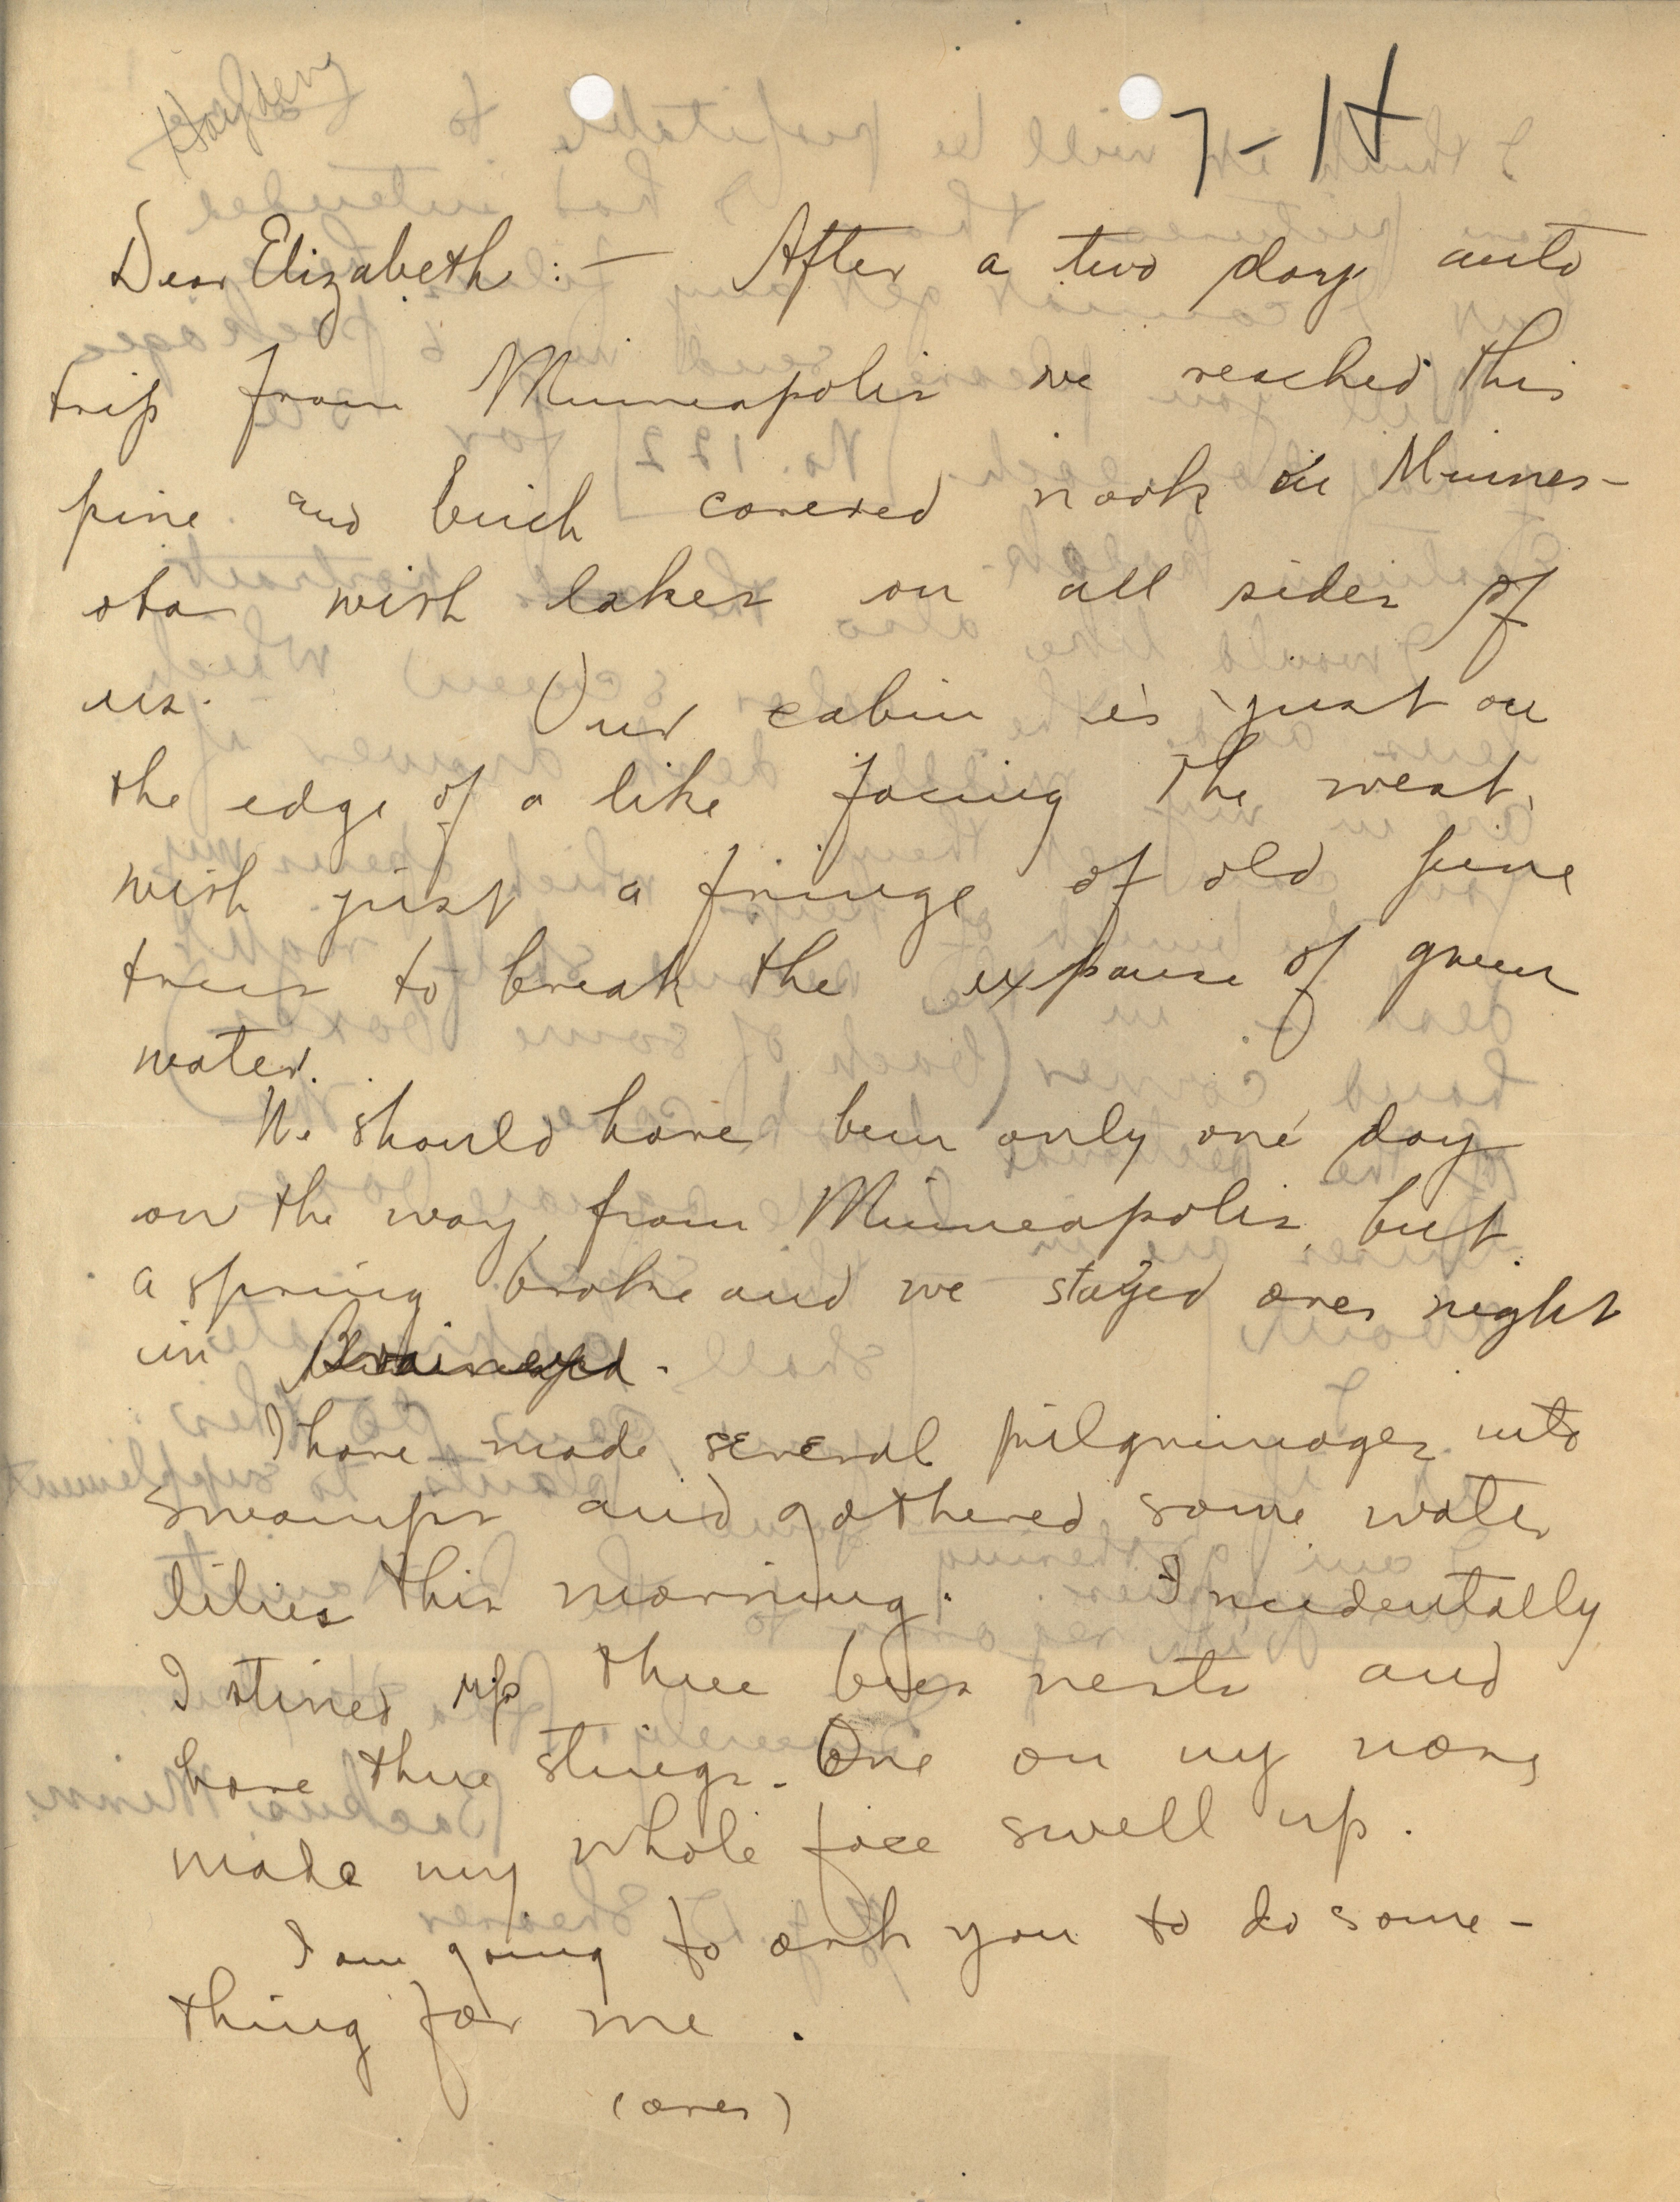 7-14
Dear Elizabeth:— After a two day auto
trip from Minneapolis we reached this
pine and birch covered nook in Minnes-
ota with lakes on all sides of
us. Our cabin is just on
the edge of a like facing the west,
with just a fringe of old pine
trees to break the expanse of green
water.
We should have been only one day
on the way from Minneapolis, but
a spring broke and we stayed over night
in Brainerd.
I have made several pilgrimages into
swamps and gathered some water
lilies this morning. Incidentally
I stired up three bees nests and
have three stings. One on my nose
made my whole face swell up.
I am going to ask you to do some-
thing for me.
(over)